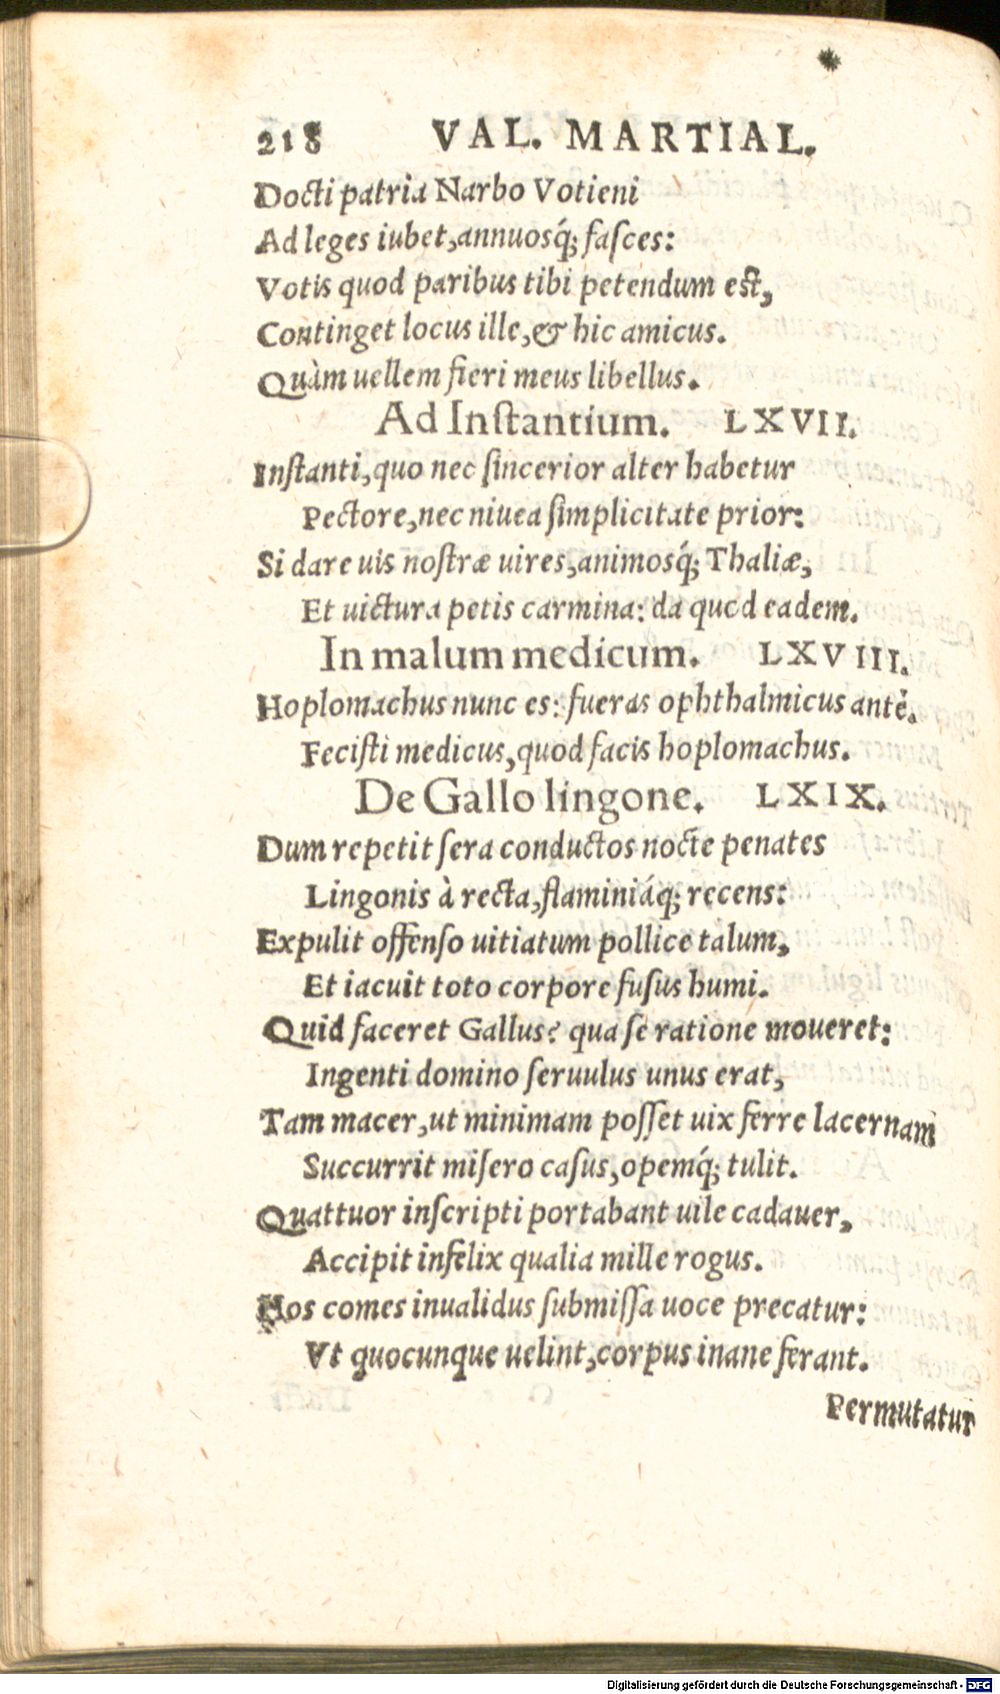 218 VAL. MARTIAL.
Docti patria Narbo Votieni
Ad leges iubet, annuosq́; faſces:
Votis quod paribus tibi petendum eſt,
Continget locus ille, & hic amicus.
Quàm uellem fieri meus libellus.
Ad Inſtantium. LXVII.
Inſtanti, quo nec ſincerior alter habetur
Pectore, nec niuea ſimplicitate prior:
Si dare uis noſtræ uires, animosq́; Thaliæ,
Et uictura petis carmina: da quod eadem.
In malum medicum. LXVIII.
Hoplomachus nunc es: fueras ophthalmicus antè.
Feciſti medicus, quod facis hoplomachus.
De Gallo lingone. LXIX.
Dum repetit ſera conductos nocte penates
Lingonis à recta, flaminiáq; recens:
Expulit offenſo uitiatum pollice talum,
Et iacuit toto corpore fuſus humi.
Quid faceret Gallus? qua ſe ratione moueret:
Ingenti domino ſeruulus unus erat,
Tam macer, ut minimam poſſet uix ferre lacernam
Succurrit miſero caſus, opemq́; tulit.
Quattuor inſcripti portabant uile cadauer,
Accipit infelix qualia mille rogus.
Hos comes inualidus ſubmiſſa uoce precatur:
Vt quocunque uelint, corpus inane ferant.
Permutatur
Digitalisierung gefördert durch die Deutsche Forschungsgemeinschaft - DFG